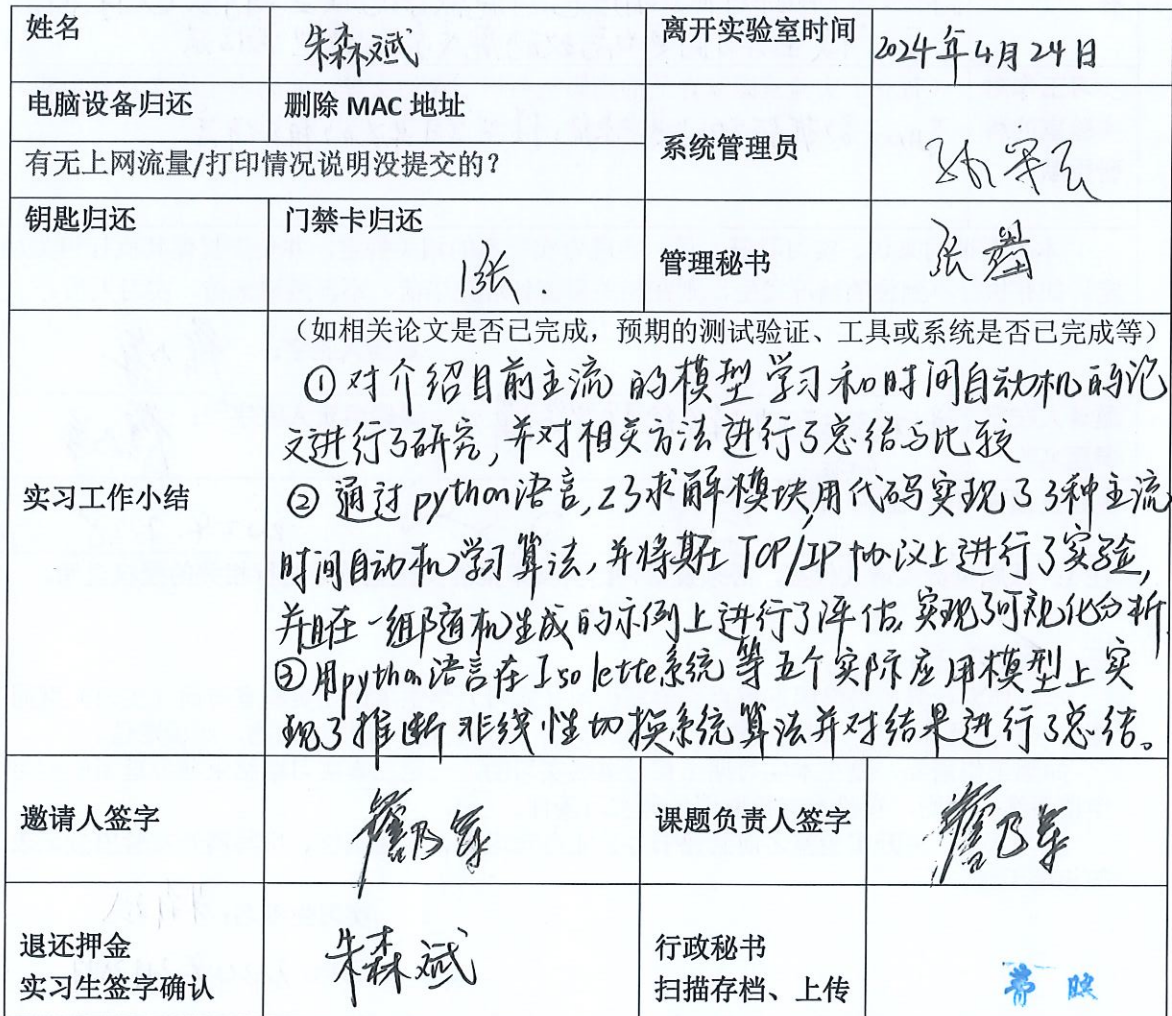 姓名 朱森斌 离开实验室时间 2024年4月24日
电脑设备归还 删除 MAC 地址
有无上网流量/打印情况说明没提交的？ 系统管理员
钥匙归还 门禁卡归还
1张. 管理秘书 张
（如相关论文是否已完成，预期的测试验证、工具或系统是否已完成等）
①对介绍目前主流的模型学习和时间自动机的论
文进行了研究，并对相关方法进行了总结与比较
实习工作小结
②通过python语言，Z3求解模块，用代码实现了3种主流
时间自动机学习算法，并将其在TCP/IP协议上进行了实验，
并且在一组随机生成的示例上进行了评估，实现了可视化分析
③用python语言在Isolette系统等五个实际应用模型上实
现了推断非线性切换系统算法并对结果进行了总结。
邀请人签字 詹乃军 课题负责人签字 詹乃军
退还押金 行政秘书
实习生签字确认 朱森斌 扫描存档、上传